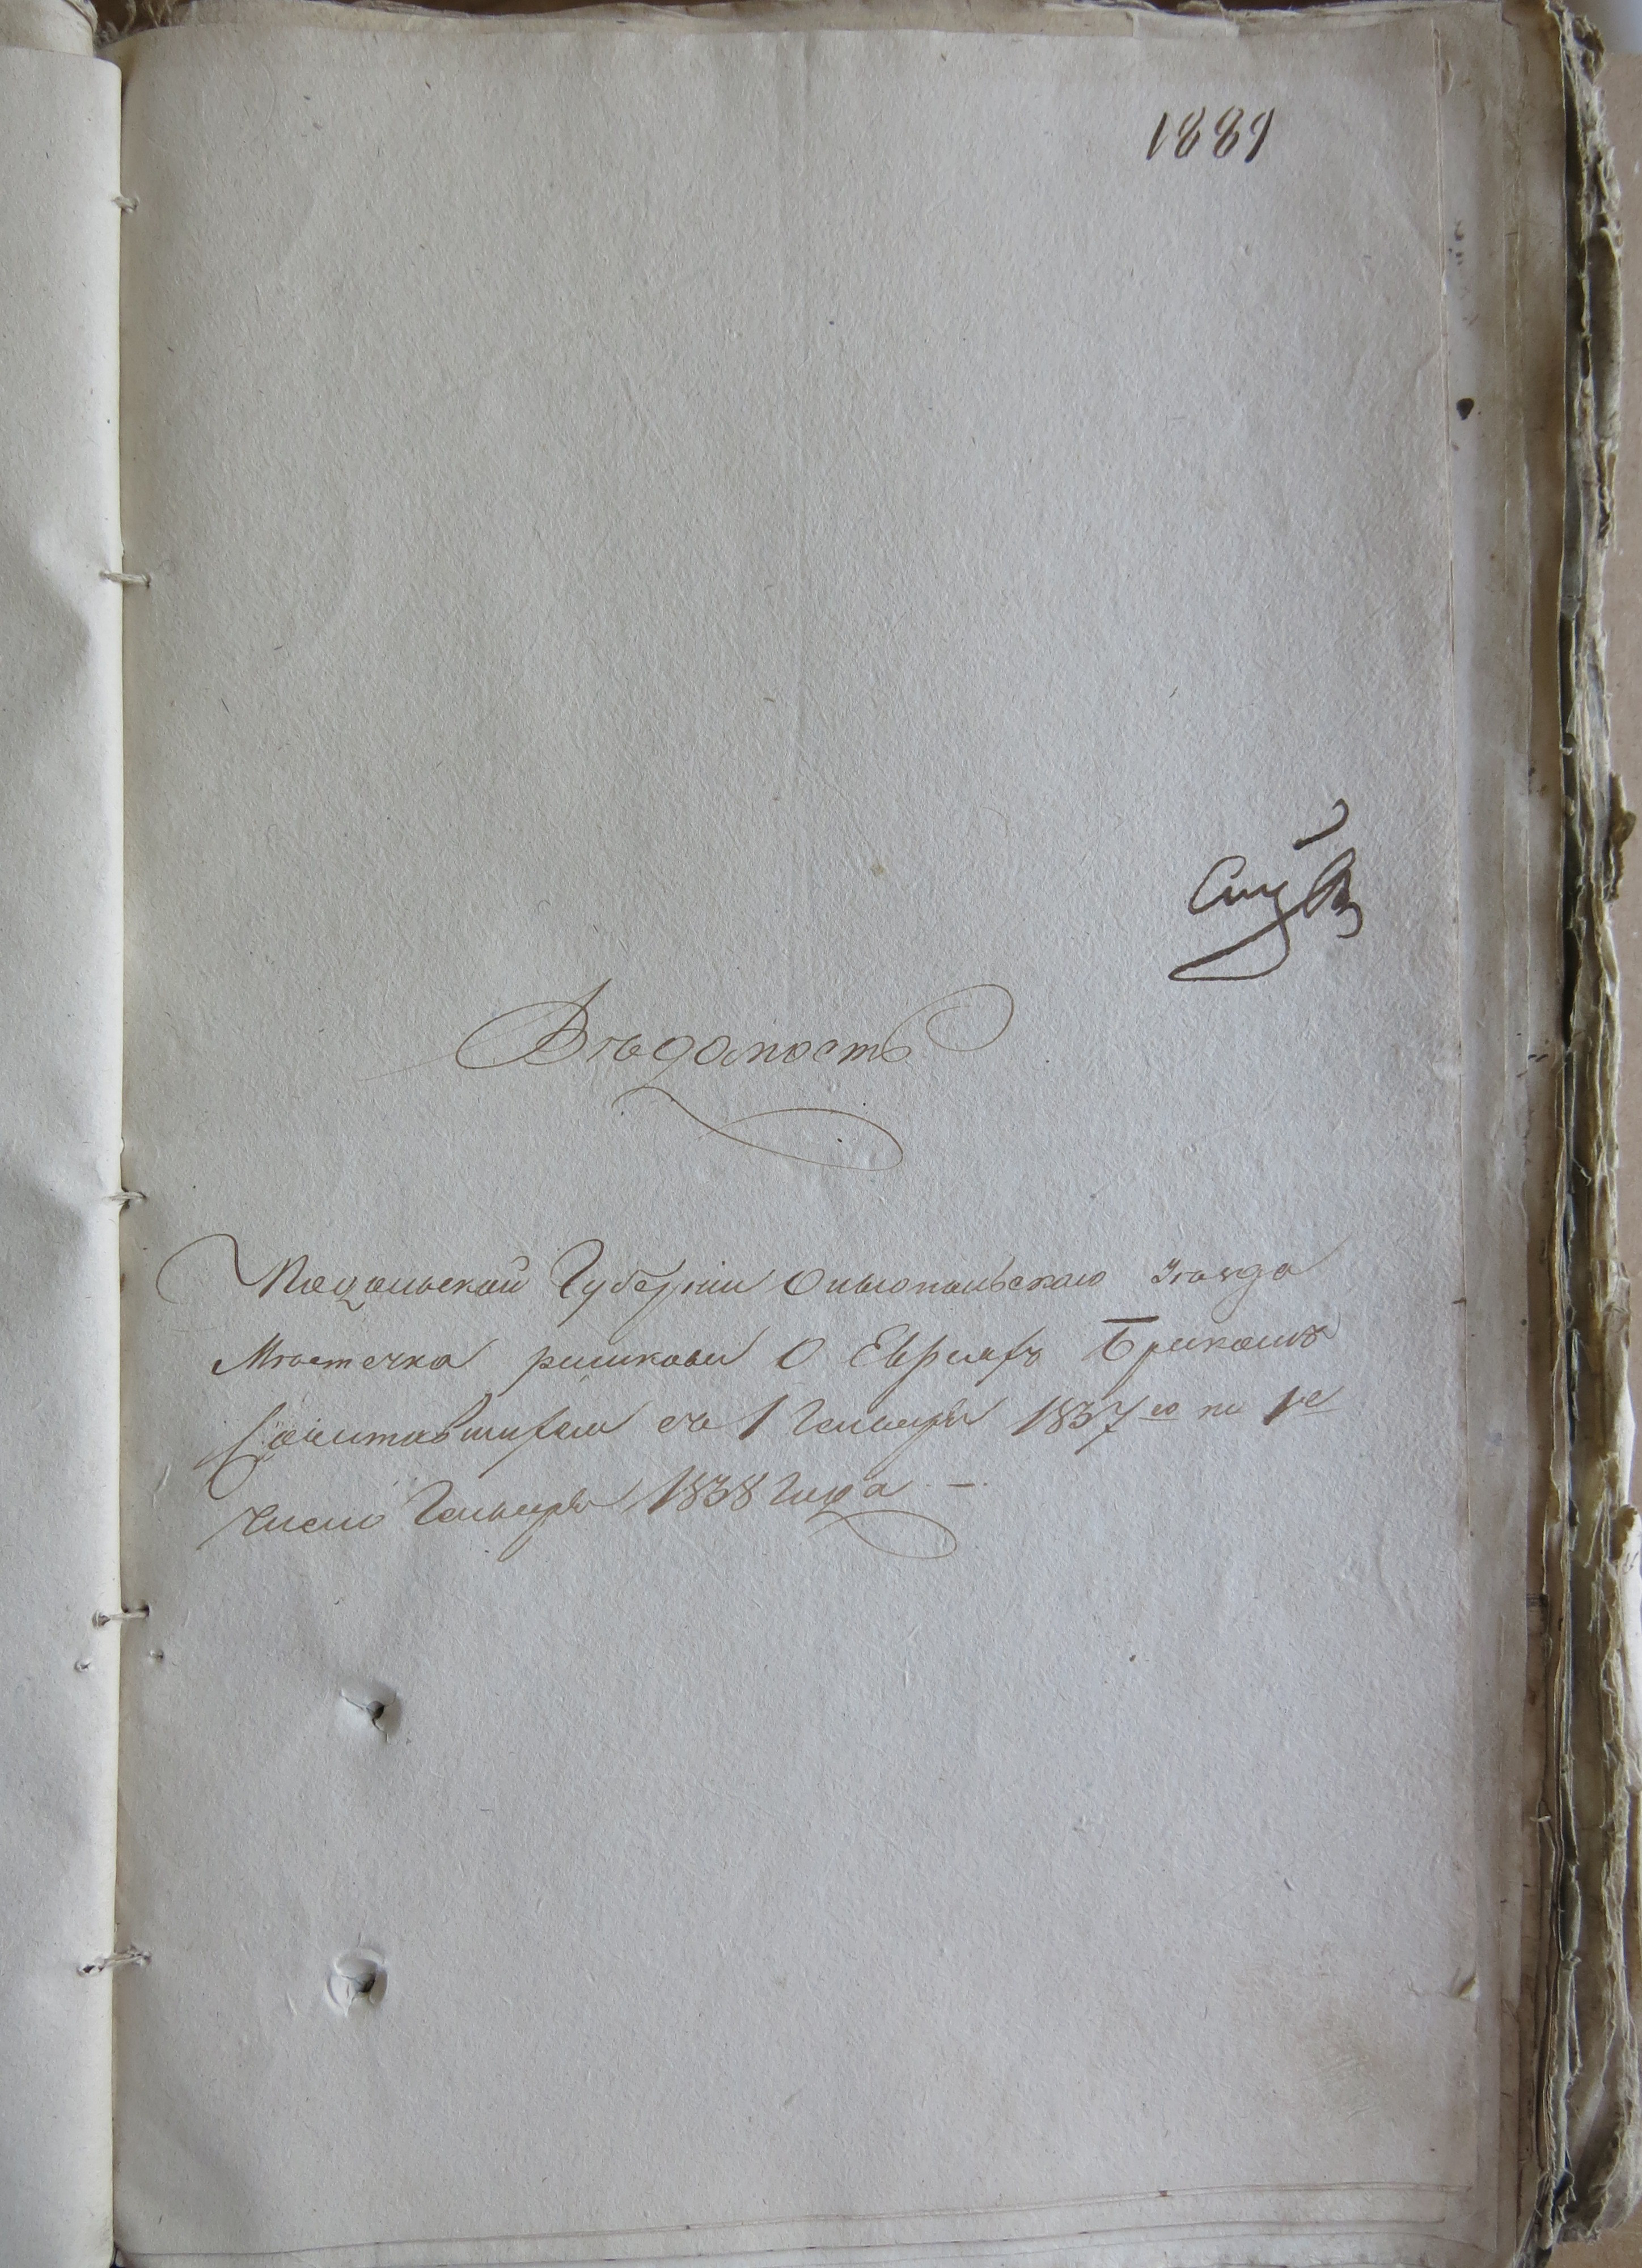 1881
Вѣдомость
Подольской Губерніи Ольгопольскаго уѣзда
Мѣстечка О Евреяхъ Бракомъ
Сочитавшихся съ 1 Генваря 1837го по 1е
число Генваря 1838 Года —